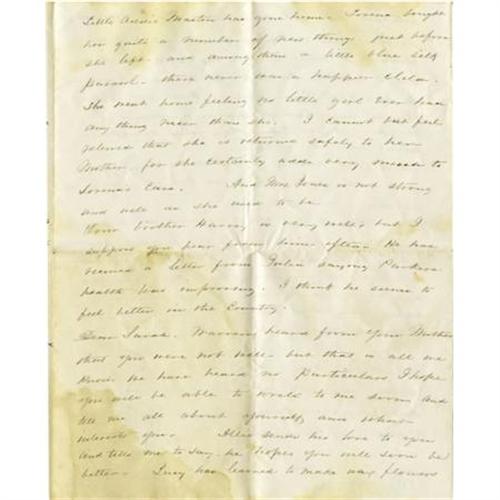 Little Addie Martin has gone home. Lorena bought
her quite a number of new things just before
she left and among them a little blue silk
parasol - there never was a happier child.
She went home feeling no little girl ever had
any thing nicer than she. I cannot but feel
relieved that she is returned safely to her
Mother, for she certainly added very much to
Lorena's care. And Mrs Jones is not strong
and well as she used to be
Your brother Harvey is very well but I
suppose you hear from him often. He has
received a letter from Julia saying Parkers
health was improving. I think he seems to
feel better in the Country.
Dear Sarah. Warren heard from your Mother
that you were not well but that is all we
know. We have heard no particulars I hope
you will be able to write to me soon and
tell me all about yourself, and what
interests you. sends his love to you
and tells me to say he hopes you will soon be
better. Lucy has learned to make wax flowers